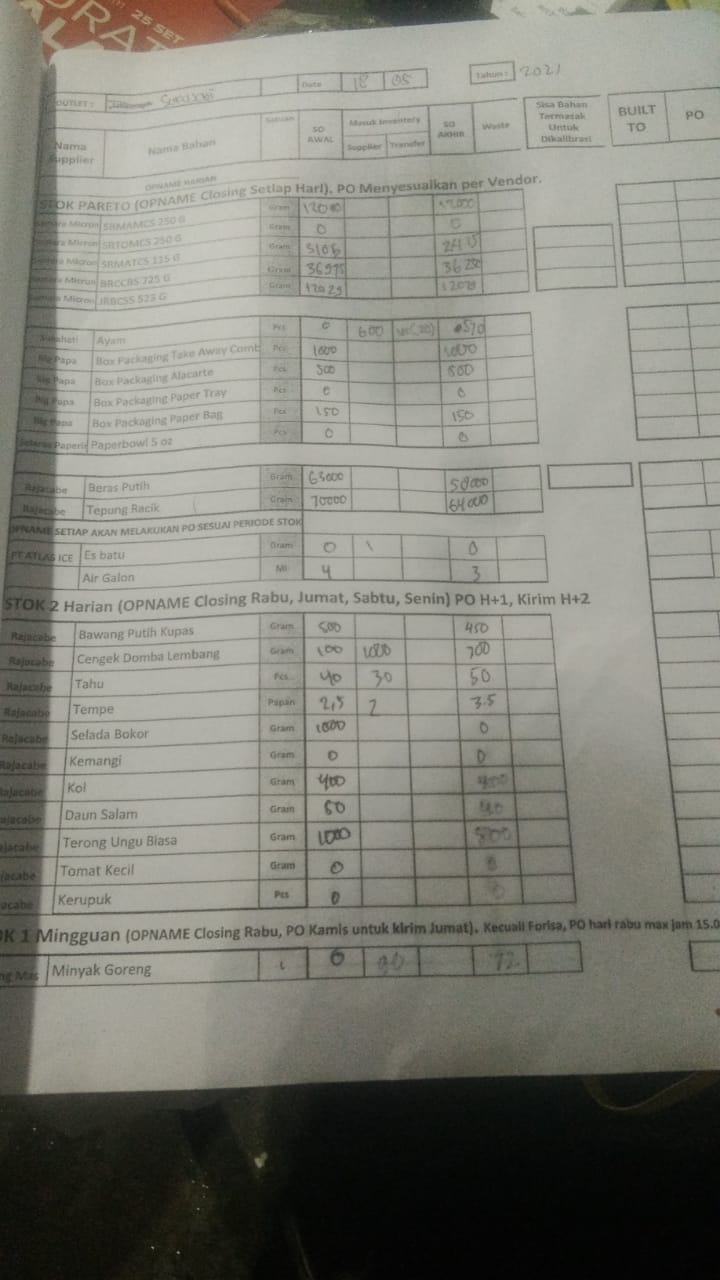 25 SET
OUTLET :
Date
18
05
Tahun :
2021
Nama Supplier
Nama Bahan
Satuan
SO AWAL
Masuk Inventory
Supplier
Transfer
SO AKHIR
Waste
Sisa Bahan Termasak Untuk Dikalibrasi
BUILT TO
PO
OPNAME HARIAN
STOK PARETO (OPNAME Closing Setiap Hari). PO Menyesuaikan per Vendor.
Micron SRMAMCS 250 G Gram 12000 12000
Micron SRTOMCS 250 G Gram 0 0
Micron SRMATCS 115 G Gram 5106
Micron BRCCBS 725 G Gram 36975 36250
Micron JRBCSS 523 G Gram 12029 12029
Ayam Pcs 0 600 570
Big Papa Box Packaging Take Away Comb Pcs 1000 1000
Big Papa Box Packaging Alacarte Pcs 500 500
Big Papa Box Packaging Paper Tray Pcs 0 0
Big Papa Box Packaging Paper Bag Pcs 150 150
Paperbowl 5 oz Pcs 0 0
Rajacabe Beras Putih Gram 63000 58000
Rajacabe Tepung Racik Gram 70000 64000
OPNAME SETIAP AKAN MELAKUKAN PO SESUAI PERIODE STOK
PT ATLAS ICE Es batu Gram 0 1 0
Air Galon Ml 4 3
STOK 2 Harian (OPNAME Closing Rabu, Jumat, Sabtu, Senin) PO H+1, Kirim H+2
Rajacabe Bawang Putih Kupas Gram 500 450
Rajacabe Cengek Domba Lembang Gram 100 1000 700
Rajacabe Tahu Pcs 40 30 50
Rajacabe Tempe Papan 2,5 2 3.5
Rajacabe Selada Bokor Gram 1000 0
Rajacabe Kemangi Gram 0 0
Rajacabe Kol Gram 400 400
Rajacabe Daun Salam Gram 50 40
ajacabe Terong Ungu Biasa Gram 1000 500
jacabe Tomat Kecil Gram 0 0
acabe Kerupuk Pcs 0 0
OK 1 Mingguan (OPNAME Closing Rabu, PO Kamis untuk kirim Jumat). Kecuali Forisa, PO hari rabu max jam 15.0
ng Mas Minyak Goreng L 0 90 72